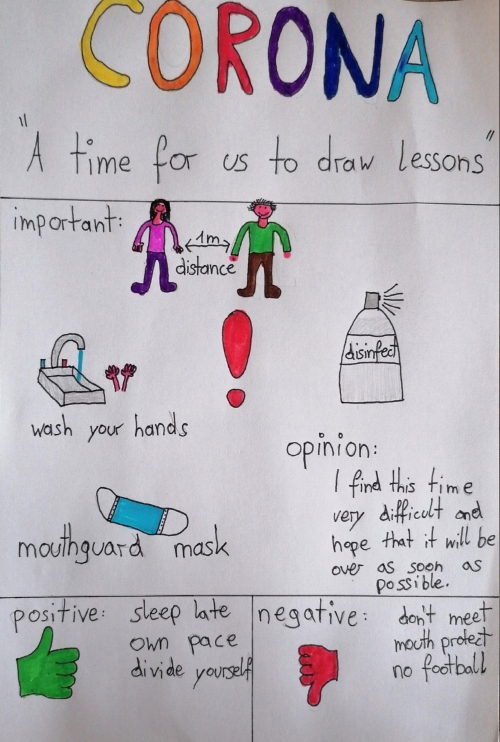 CORONA
"A time for us to draw lessons"
important:
1m
distance
disinfect
wash your hands
opinion:
I find this time
very difficult and
hope that it will be
over as soon as
possible.
mouthguard mask
positive:
sleep late
own pace
divide yourself
negative:
don't meet
mouth protect
no football